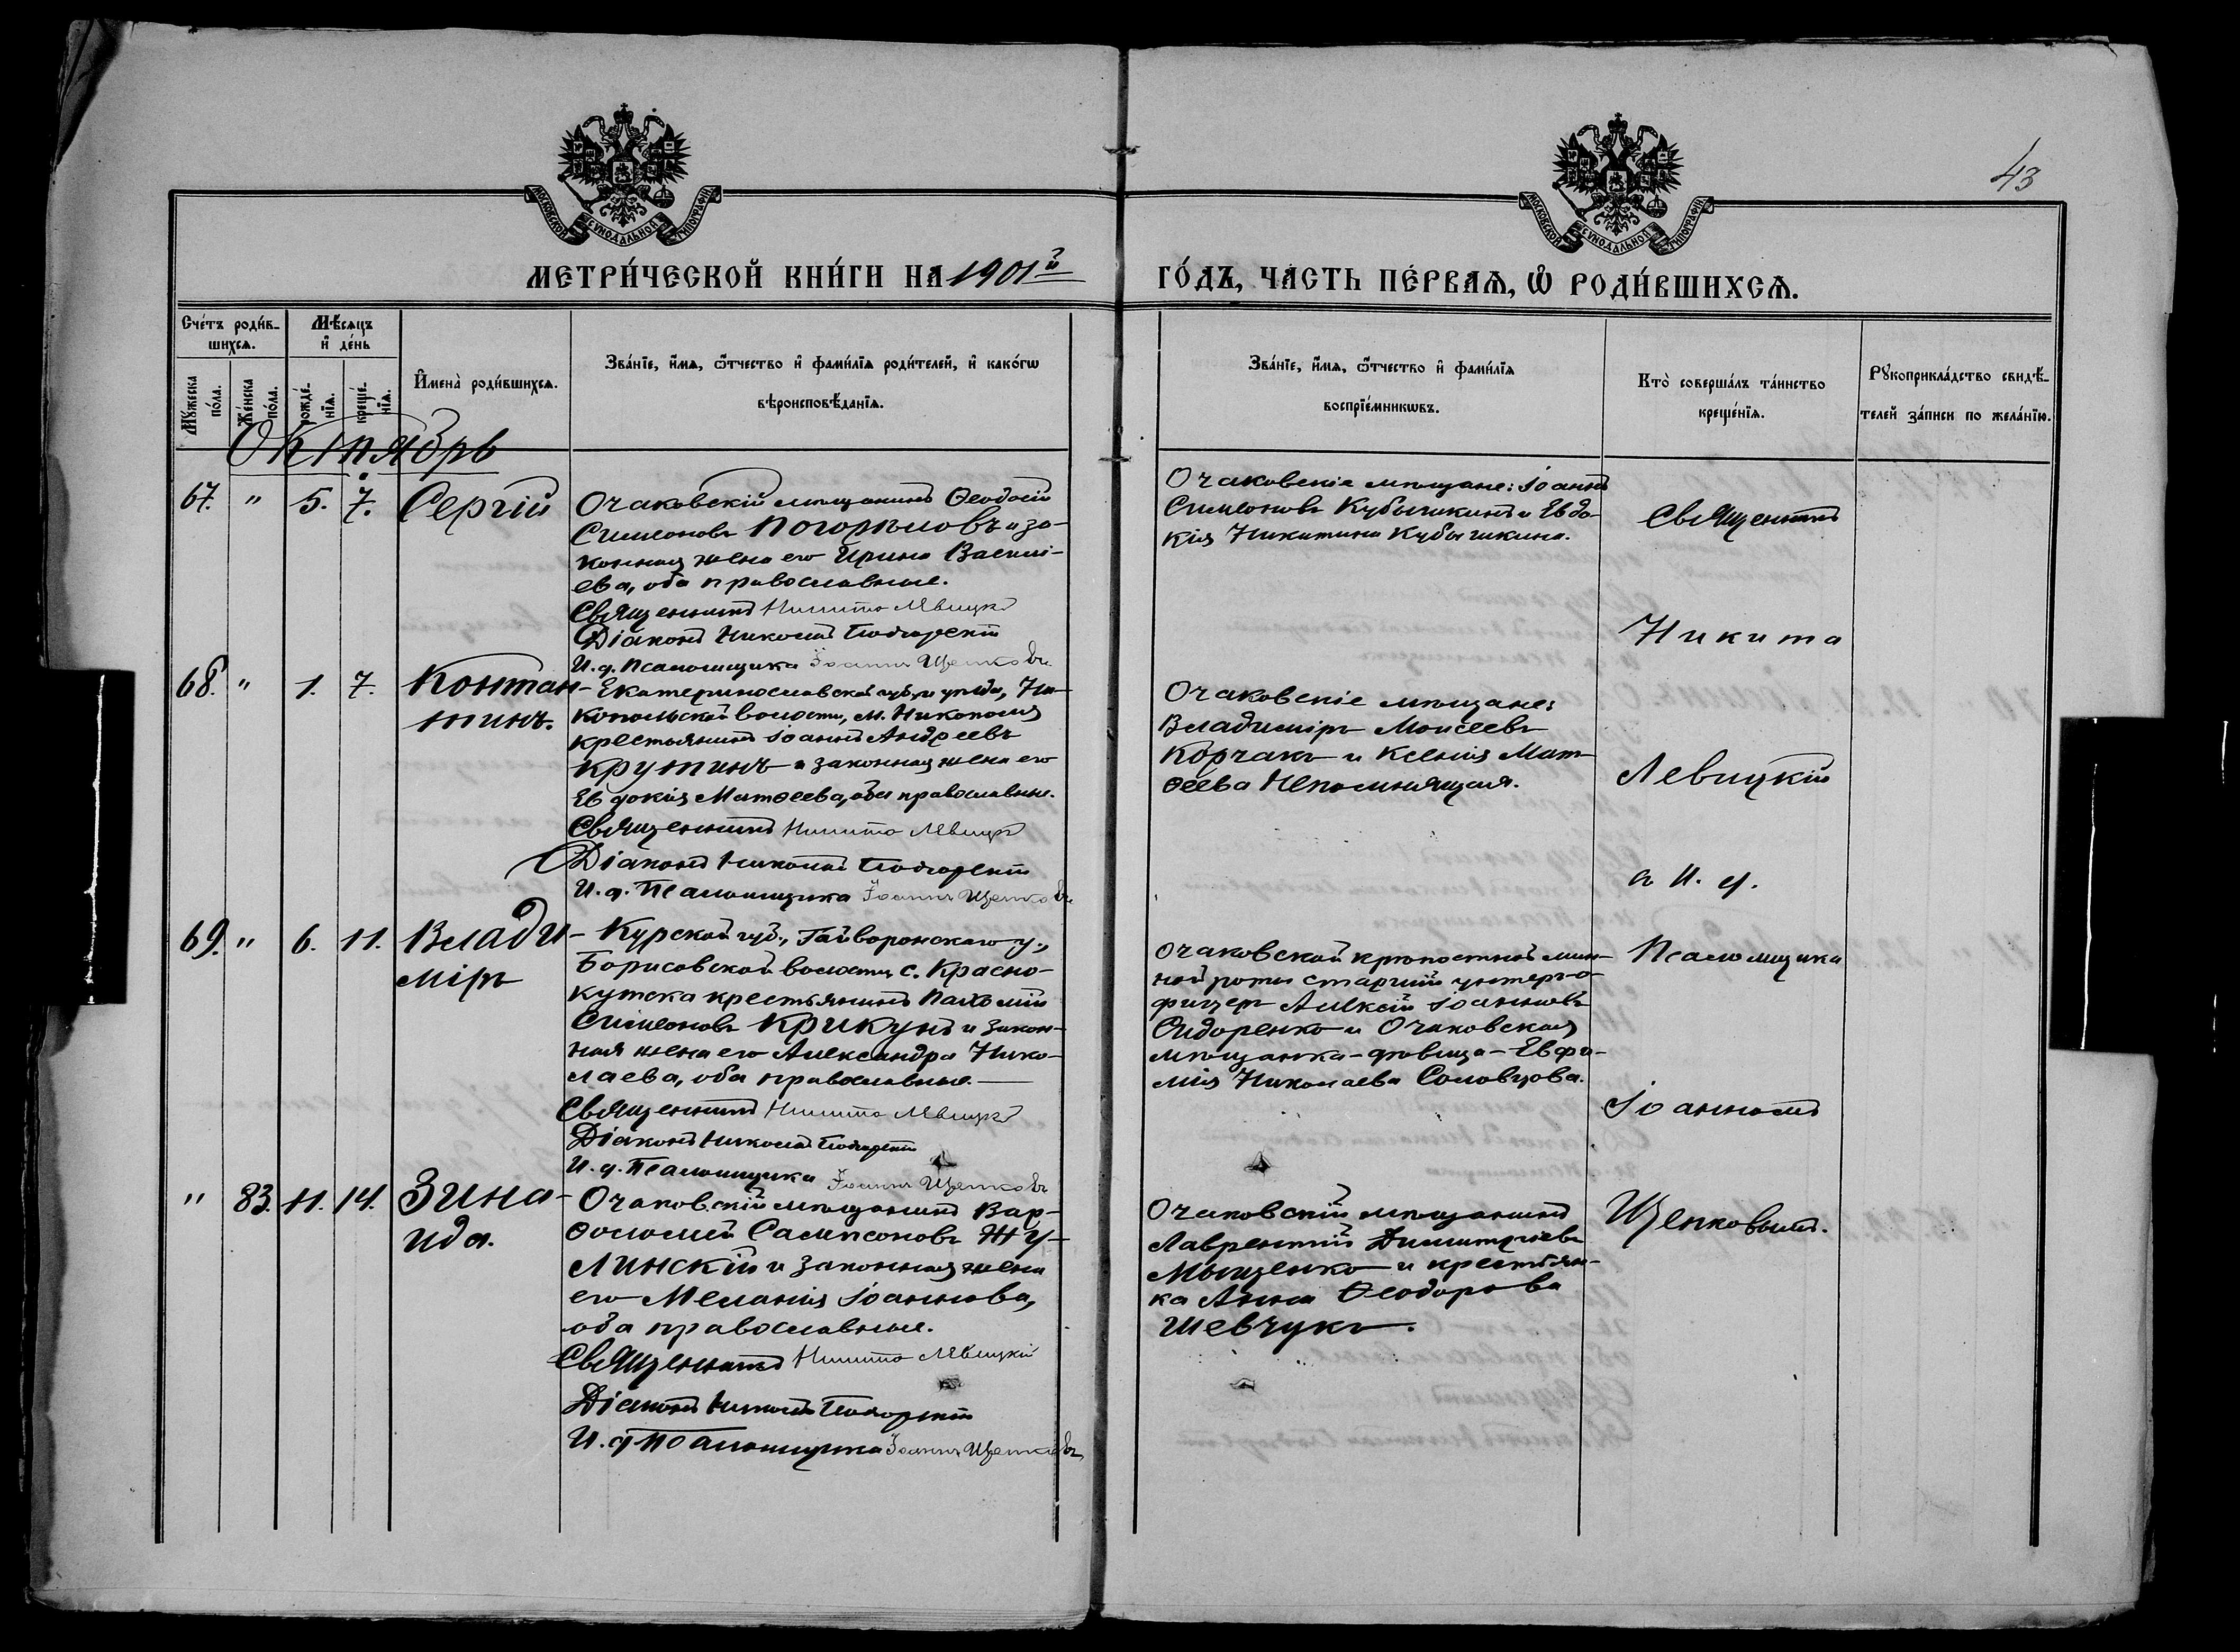 43
МОСКОВСКОЙ СѴНОДАЛЬНОЙ ТИПОГРАФІИ
МОСКОВСКОЙ СѴНОДАЛЬНОЙ ТИПОГРАФІИ
МЕТРИ́ЧЕСКОЙ КНИ́ГИ НА 1901й ГО́ДЪ, ЧА́СТЬ ПЕ́РВАѦ, Ѡ҆ РОДИ́ВШИХСѦ.
Сче́тъ роди́в-
шихсѧ.
Мꙋ́жеска по́ла.
Же́нска по́ла.
Мѣ́сѧцъ
и҆ де́нь
рожде́-нїѧ.
креще́-нїѧ.
И҆мена̀ роди́вшихсѧ.
Зва́нїе, и҆́мѧ, ѻ҆́тчество и҆ фами́лїѧ роди́телей, и҆ како́гѡ
вѣроисповѣ́данїѧ.
Зва́нїе, и҆́мѧ, ѻ҆́тчество и҆ фами́лїѧ
воспрїе́мникѡвъ.
Кто̀ соверша́лъ та́инство
креще́нїѧ.
Рꙋкоприкла́дство свидѣ́-
телей за́писи по жела́нїю.
Октябрь
67. " 5. 7. Сергій
Очаковскій мѣщанинъ Ѳеодосій
Симеоновъ Погорѣловъ и за-
конная жена его Ирина Васили-
ева, оба православные.
Священникъ Никита Левицкій
Діаконъ Николай Подгорскій
И. д. Псаломщика Іоаннъ Щенковъ
Очаковскіе мѣщане: Іоаннъ
Симеоновъ Кубышкинъ и Евдо-
кія Никитина Кубышкина.
68. " 1. 7. Контан-
тинъ.
Екатеринославской губ. и уѣзда, Ни-
копольской волости, м. Никополя
крестьянинъ Іоаннъ Андреевъ
Крутинъ и законная жена его
Евдокія Матѳеева, оба православные.
Священникъ Никита Левицкій
Діаконъ Николай Подгорскій
И. д. Псаломщика Іоаннъ Щенковъ
Очаковскіе мѣщане:
Владиміръ Моисеевъ
Корчакъ и Ксенія Мат-
ѳеева Непомнящая.
69. " 6. 11. Влади-
міръ
Курской губ., Гайворонскаго у.,
Борисовской волости, с. Красно-
кутска крестьянинъ Пахомій
Симеоновъ Крикунъ и закон-
ная жена его Александра Нико-
лаева, оба православные.
Священникъ Никита Левицкій
Діаконъ Николай Подгорскій
И. д. Псаломщика Іоаннъ Щенковъ
Очаковской крѣпостной мин-
ной роты старшій унтеръ-о-
фицеръ Алексій Іоанновъ
Сидоренко и Очаковская
мѣщанка-дѣвица-Евфи-
мія Николаева Соловцова.
" 83. 11. 14. Зина-
ида.
Очаковскій мѣщанинъ Вар-
ѳоломей Сампсоновъ Жу-
линскій и законная жена
его Меланія Іоаннова,
оба православные.
Священникъ Никита Левицкій
Діаконъ Николай Подгорскій
И. д. Псаломщика Іоаннъ Щенковъ
Очаковскій мѣщанинъ
Лаврентій Димитріевъ
Мищенко и крестьян-
ка Анна Ѳеодорова
Шевчукъ.
Священникъ
Никита
Левицкій
съ И. д.
Псаломщика
Іоанномъ
Щенковымъ.